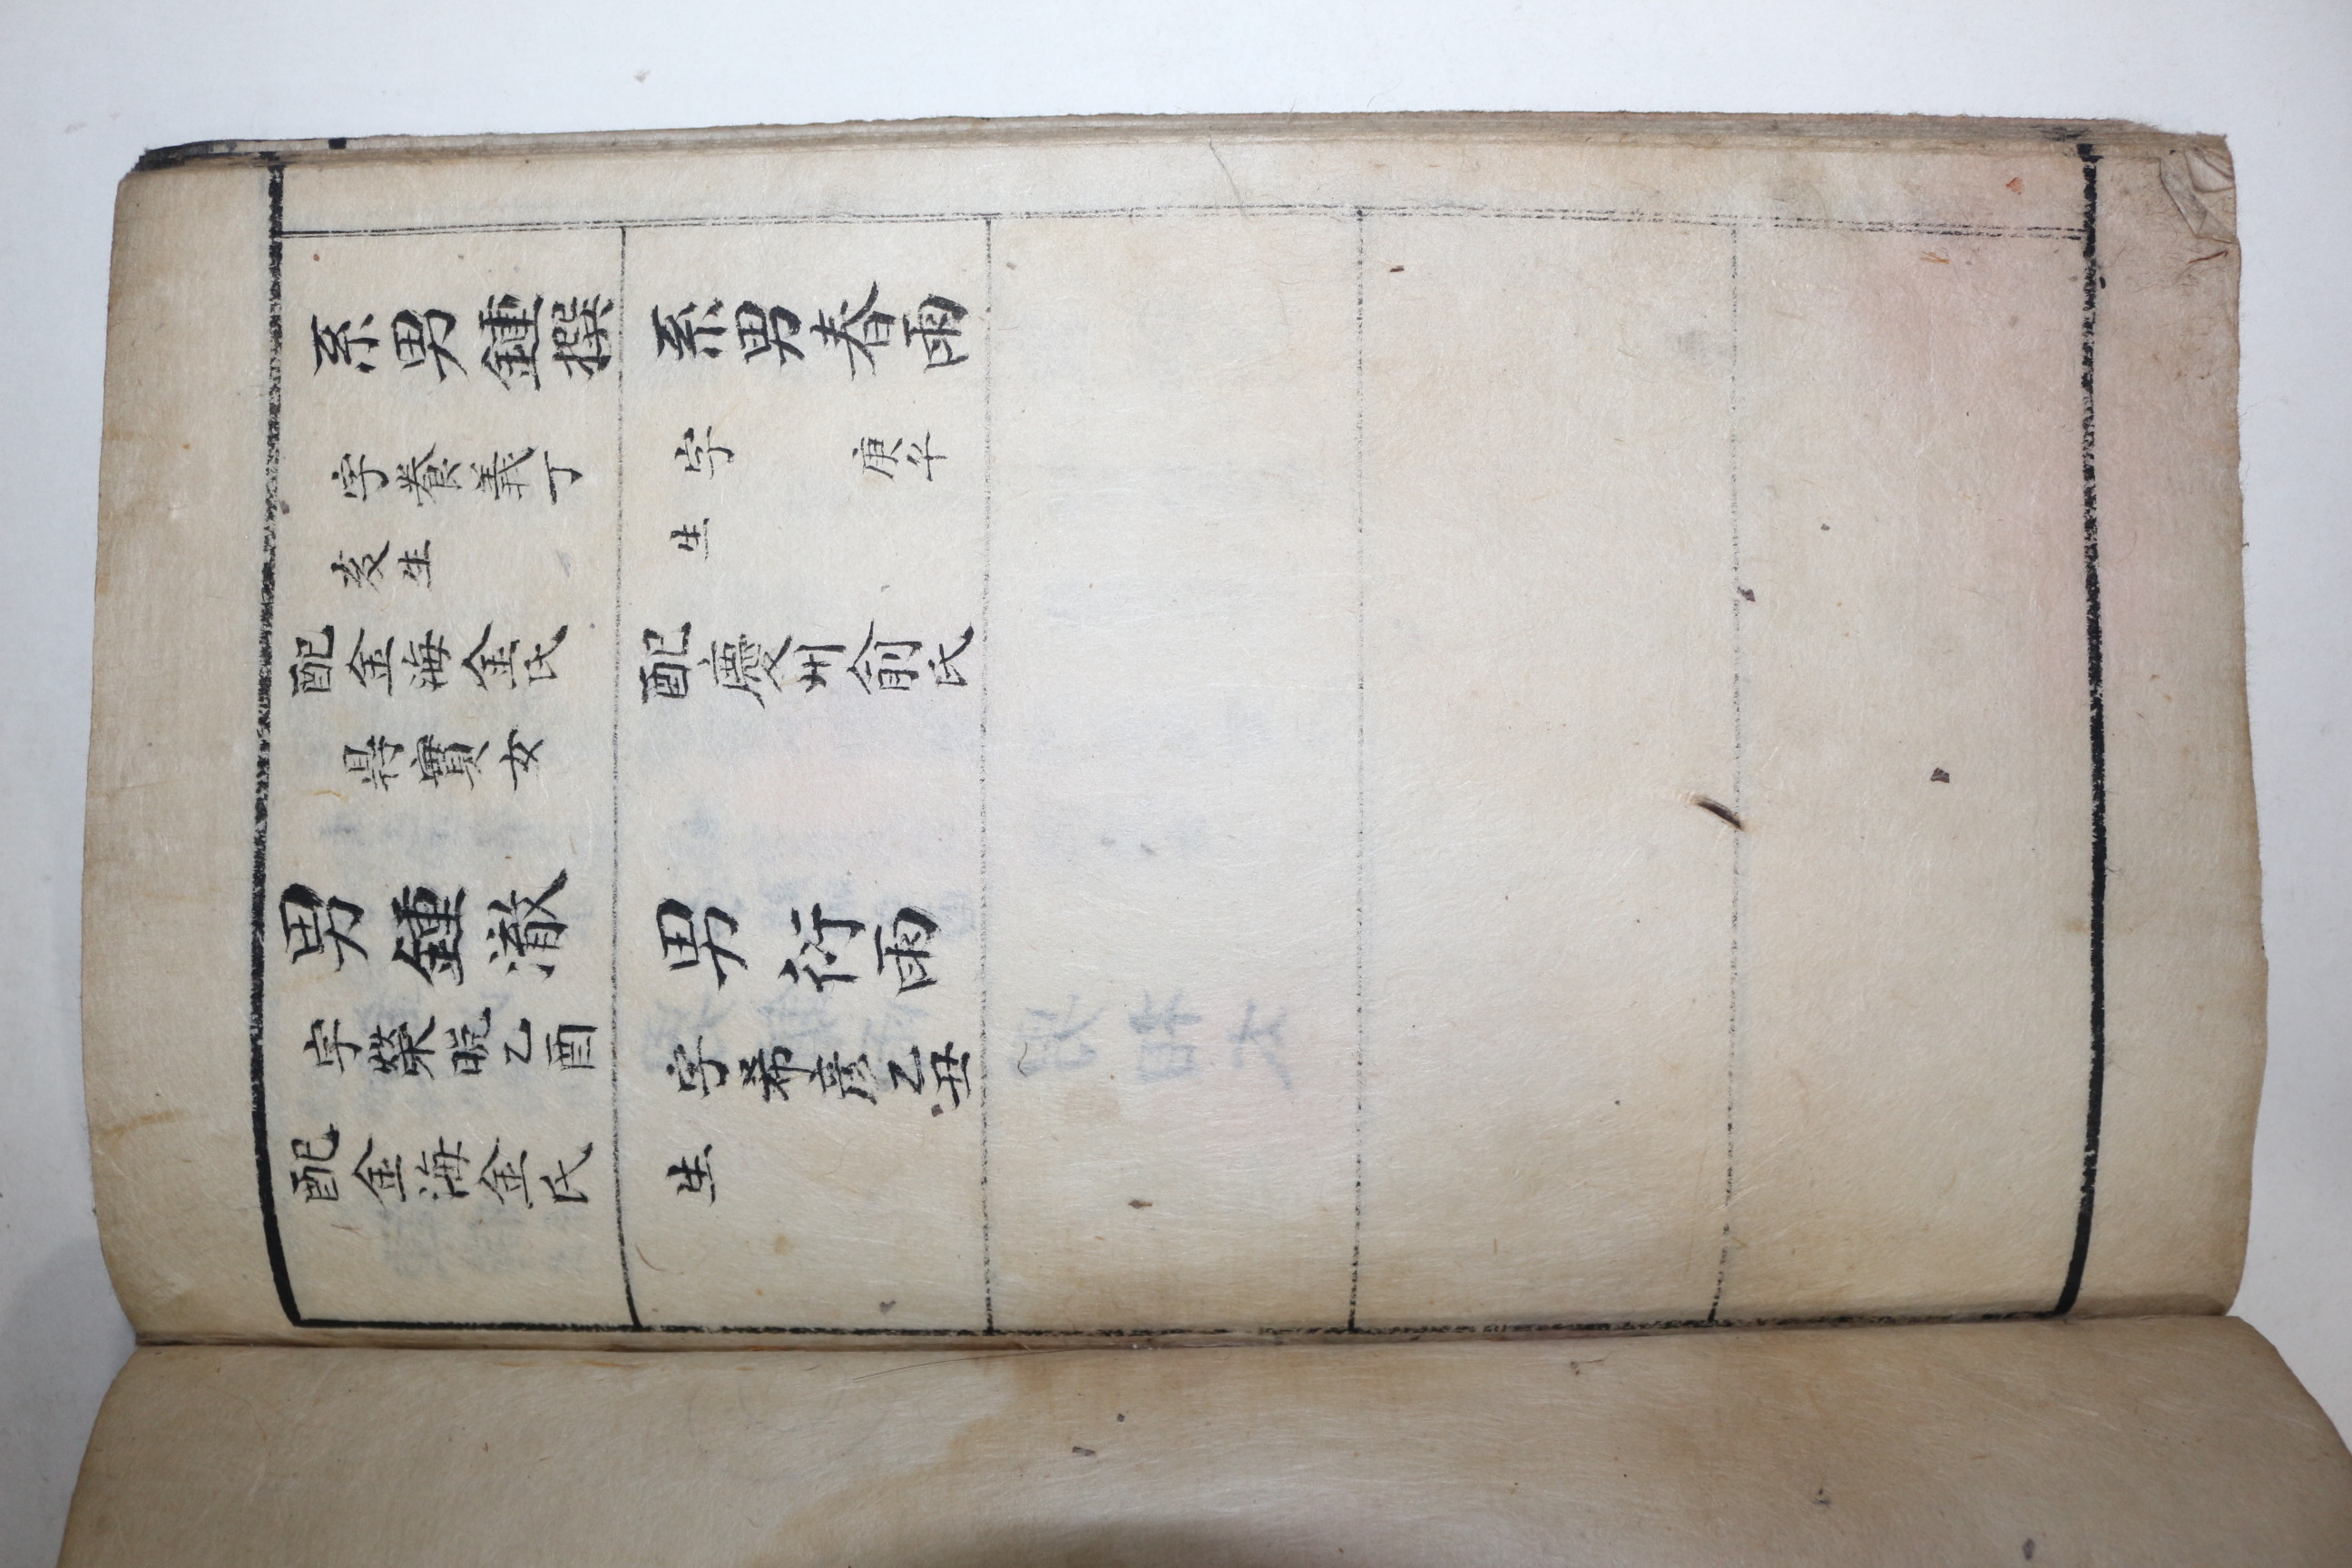 系男鍾撰
字養義丁
亥生
配金海金氏
得實女
男鍾澈
字榮晩乙酉
配金海金氏
系男春雨
字 庚午
生
配慶州俞氏
男衍雨
字希彦乙丑
生